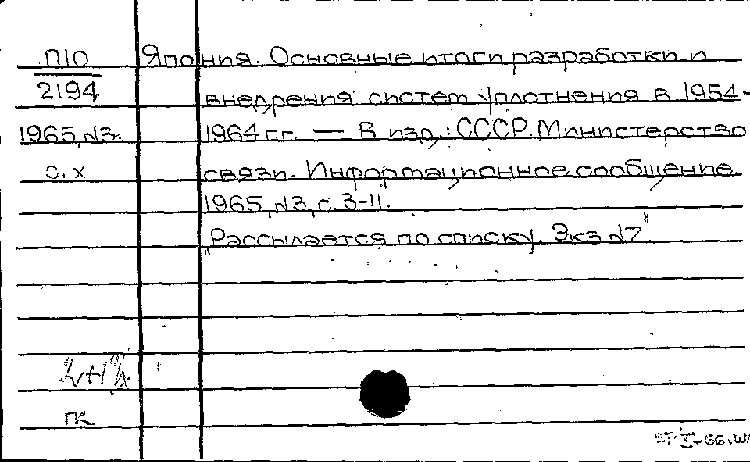 П10 Япония. Основные итоги разработки и
2194 внедрения систем уплотнения в 1954-
1965, №3. 1964 гг. — В изд.: СССР. Министерство
с.х связи. Информационное сообщение.
1965, №3, с. 3-11.
"Рассылается по списку. Экз №7"
пк